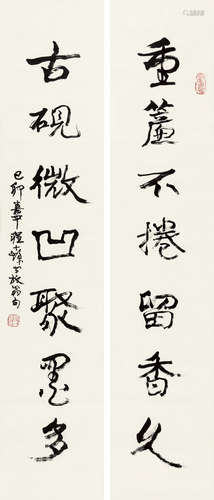 重簾不捲留香久
古硯微凹聚墨多
己卯
放翁句